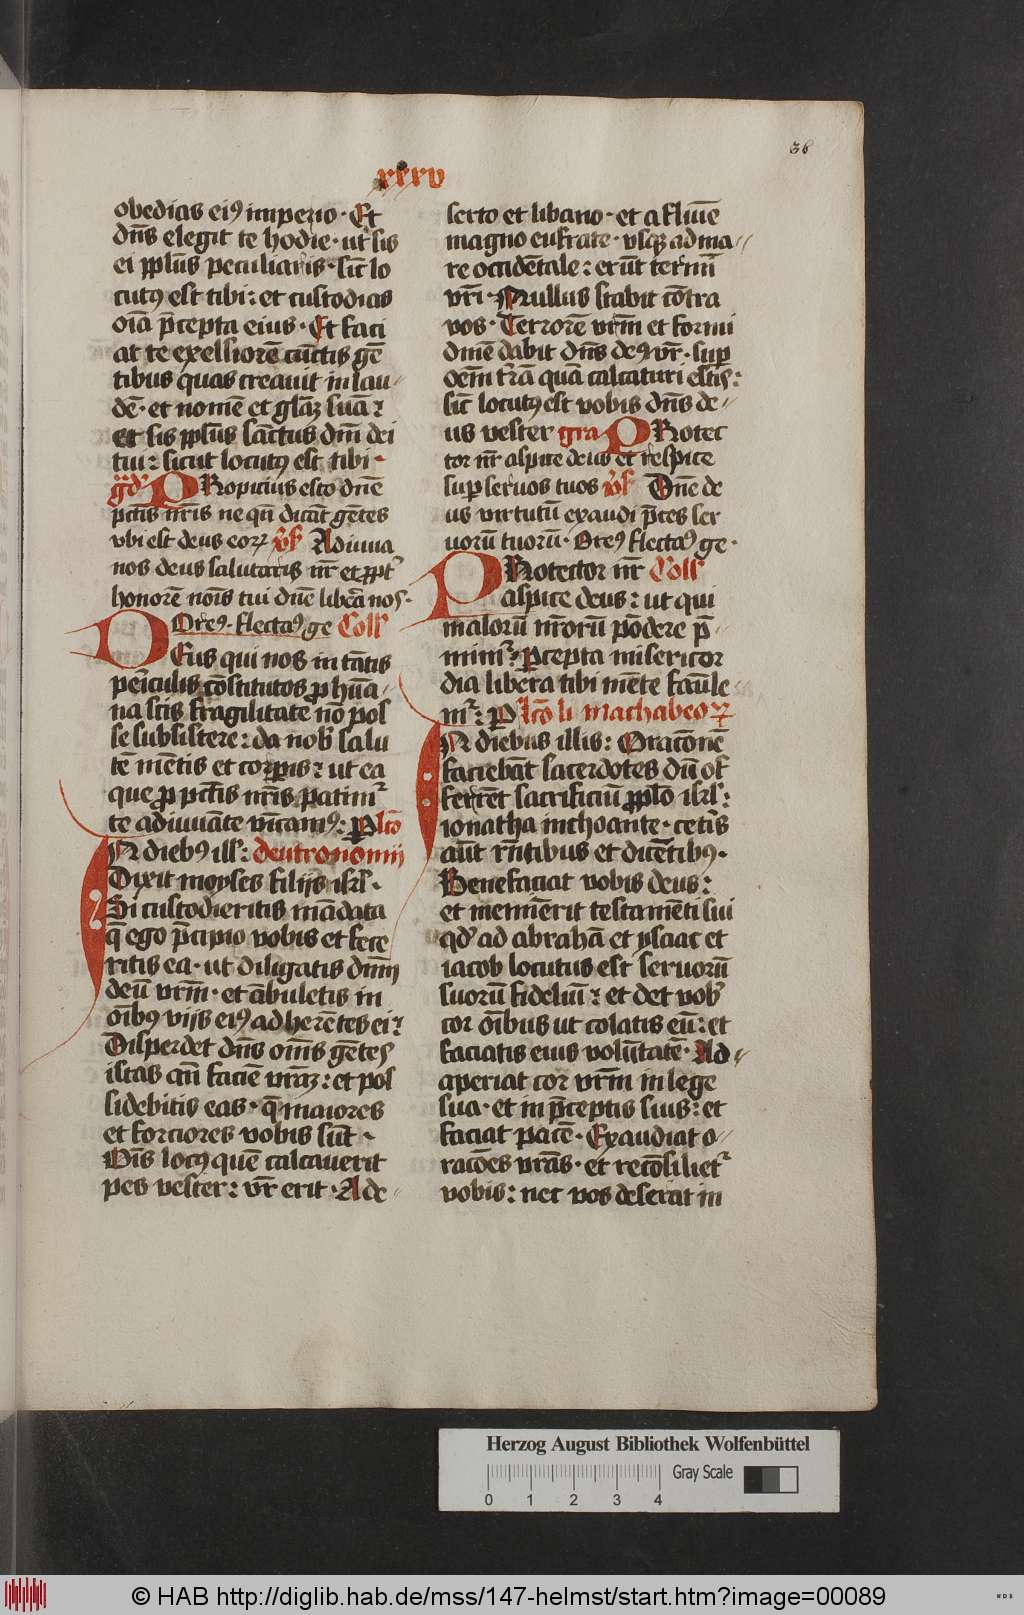 36
xxxv
obedias ei⁹ imperio · Et
dn̄s elegit te hodie · ut sis
ei pp̄lus peculiaris · sic̄ lo
cut⁹ est tibi : et custodias
oīa p̄cepta eius · Et faci
at te exelsiorē cūctis gē
tibus quas creauit in lau-
dē · et nomē et glāꝫ suā :
Et sis pp̄lus sāctus dn̄i dei
tui : sicut locut⁹ est tibi ·
gd̄ PRopicius esto dn̄e
pctīs nr̄is ne qn̄ dicāt gētes
vbi est deus eoꝝ v̄s Adiuua
nos deus salutaris nr̄ et ꝓpt̄
honorē noīs tui dn̄e libera nos ·
Ore⁹ · flecta⁹ ge Coll
DEus qui nos in tātis
periculis cōstitutos ꝓ humā-
na scīs fragilitate nō pos
se subsistere : da nob̄ salu
tē mētis et corꝑis : ut ea
que ꝓ pctīs nr̄is patimr̄
te adiuuāte vīcam⁹ : ꝑ lc̄o
IN dieb⁹ ill̄ : deutronomij
Dixit moyses filijs isrl̄ ·
Si custodieritis mādata
q̄ ego p̄cipio vobis et fece
ritis ea · ut diligatis dn̄m
deū vrm̄ · et ābuletis in
oīb⁹ vijs ei⁹ adherētes ei :
Disperdet dn̄s om̄s gētes
istas an̄ faciē vrāꝫ : et pos
sidebitis eas · q̄ maiores
et forciores vobis sūt ·
Oīs loc⁹ quē calcauerit
pes vester : vr̄ erit · A de-
serto et libano · et a fluuīe
magno eufrate · vsqꝫ ad ma-
re occidētale : erūt termī
vr̄i · Nullus stabit cōtra
vos · Terrorē vrm̄ et formi
dinē dabit dn̄s de⁹ vr̄ · suꝑ
oēm trā quā calcaturi estis :
sic̄ locut⁹ est vobis dn̄s de-
us vester gra PRotec
tor nr̄ aspice deus et respice
suꝑ seruos tuos v̄s Dn̄e de
us virtutū exaudi p̄ces ser
uorū tuorū · Ore⁹ flecta⁹ ge ·
PRotector nr̄ Coll
aspice deus : ut qui
malorū nr̄orū pōdere p̄-
mimr̄ : ꝑcepta misericor
dia libera tibi mēte famule-
mr̄ : ꝑ lc̄o li machabeoꝝ
IN diebus illis : Oracōnē
faciebāt sacerdotes dū of
ferrēt sacrificiū ꝓ pp̄lo isrl̄ :
ionatha inchoante · ceteris
aūt rn̄tibus et dicētib⁹ ·
Benefaciat vobis deus :
et meminerit testamēti sui
qd̄ ad abrahā et ysaac et
iacob locutus est seruorū
suorū fideliū : et det vob̄
cor oībus ut colatis eū : et
faciatis eius volūtatē · Ad-
aperiat cor vrm̄ in lege
sua · et in p̄ceptis suis : et
faciat pacē · Exaudiat o-
racōes vrās · et recōsilietr̄
vobis : nec vos deserat in
Herzog August Bibliothek Wolfenbüttel
Gray Scale
0 1 2 3 4
© HAB http://diglib.hab.de/mss/147-helmst/start.htm?image=00089